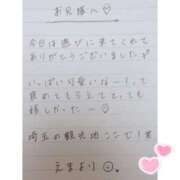 お兄様へ♡
今日は遊びに来てくれて
ありがとうございました♪
いっぱい可愛いなー！って
褒めてもらえて、とっても
嬉しかったー♡
埼玉の観光地ここで1番
えまより☺